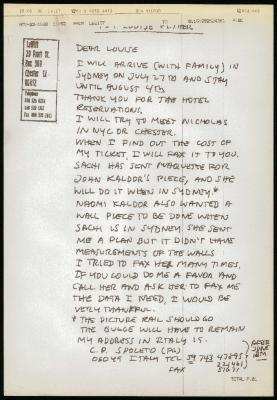 FROM LEWITT
TO
P.01
LeWitt
20 Pratt St.
Box 309
Chester Ct
06412
Telephone
DEAR LOUISE
I WILL ARRIVE (WITH FAMILY) IN
SYDNEY ON JULY 27TH AND STAY
UNTIL AUGUST 4TH.
THANK YOU FOR THE HOTEL
RESERVATIONS.
I WILL TRY TO MEET NICHOLAS
IN NYC OR CHESTER.
WHEN I FIND OUT THE COST OF
MY TICKET, I WILL FAX IT TO YOU.
SACHI HAS SENT MAQUETTE FOR
JOHN KALDOR'S PIECE, AND SHE
WILL DO IT WHEN IN SYDNEY.*
NAOMI KALDOR ALSO WANTED A
WALL PIECE TO BE DONE WHEN
SACHI IS IN SYDNEY. SHE SENT
ME A PLAN BUT IT DIDN'T HAVE
MEASUREMENTS OF THE WALLS
I TRIED TO FAX HER MANY TIMES.
IF YOU COULD DO ME A FAVOR AND
CALL HER AND ASK HER TO FAX ME
THE DATA I NEED, I WOULD BE
VERY THANKFUL.
* THE PICTURE RAIL SHOULD GO
THE BULGE WILL HAVE TO REMAIN
MY ADDRESS IN ITALY IS.
C.P. SPOLETO (PG)
06049 ITALY TEL 39 743
FAX
AFTER
JUNE
TOTAL P.01